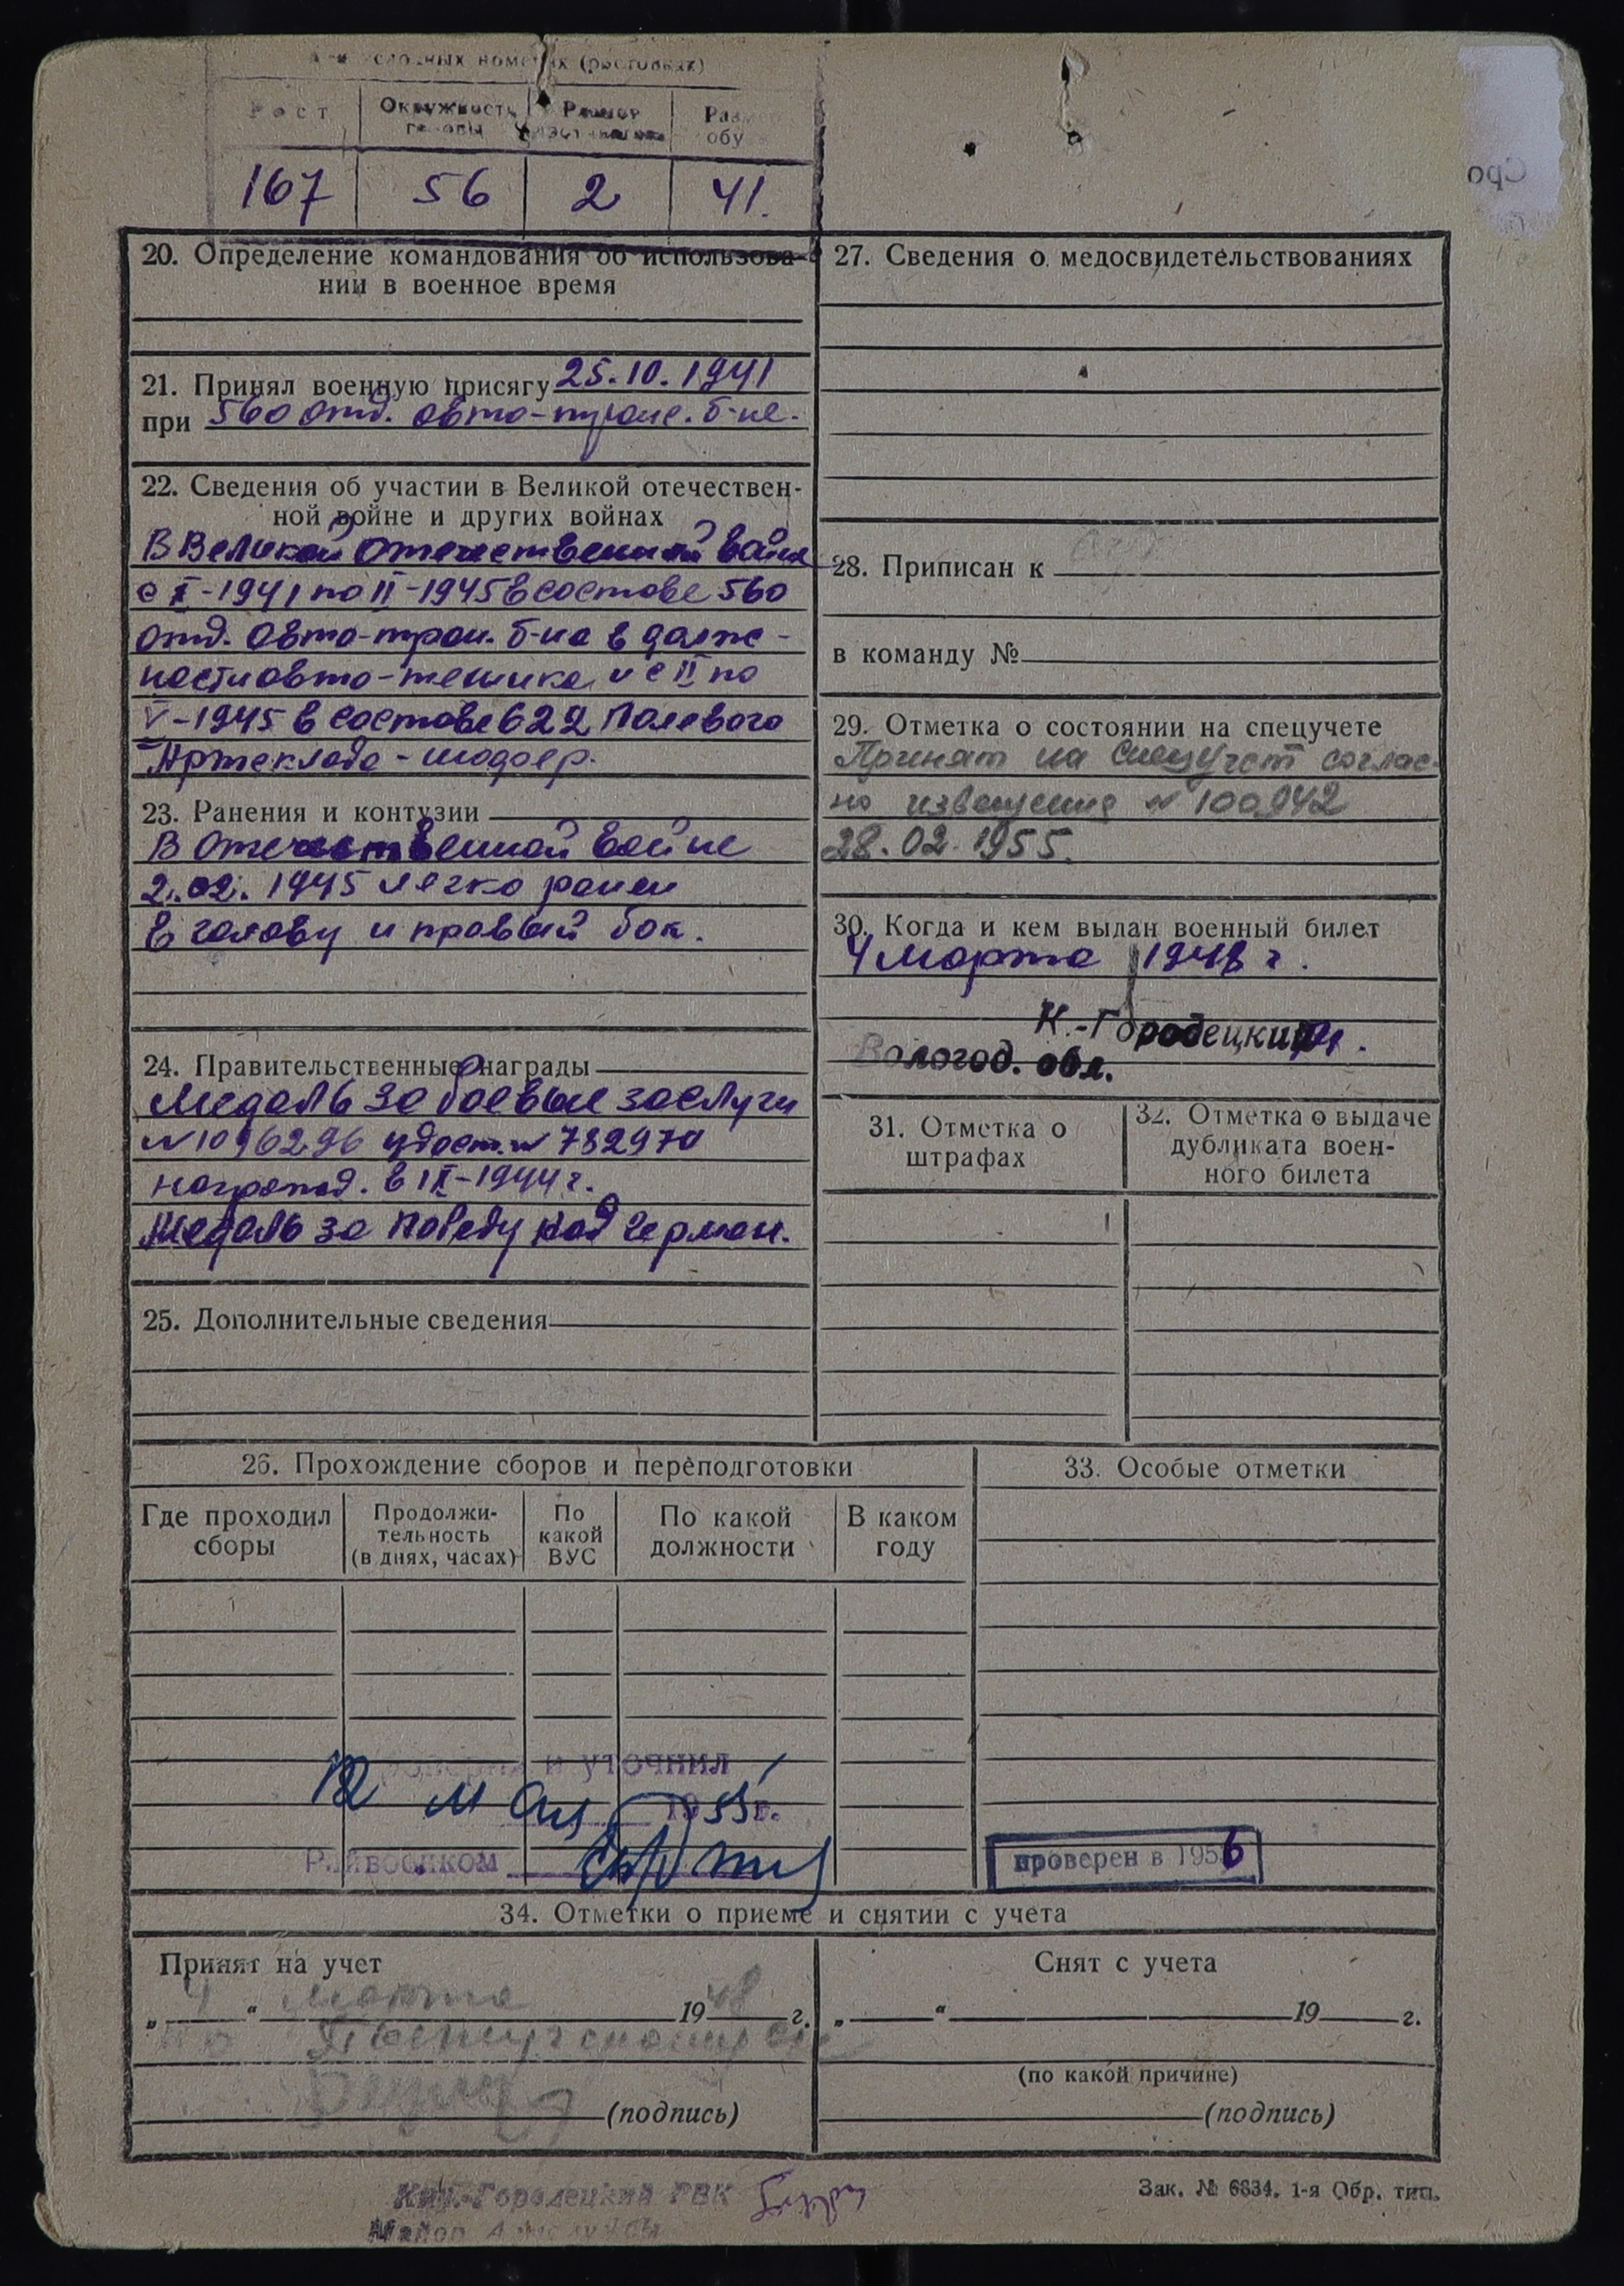 условных номерах (ростовках)
Рост
Окружность головы
Размер
Разм обу
167
56
2
41.
20. Определение командования об использова-
нии в военное время
21. Принял военную присягу 25.10.1941
при 560 отд. авто-транс. б-не.
22. Сведения об участии в Великой отечествен-
ной войне и других войнах
В Великой Отечественной войне
с X-1941 по II-1945 в составе 560
отд. авто-тран. б-на в долж-
ности авто-техника и с II по
V-1945 в составе 622 Полевого
Артсклада - шофер.
23. Ранения и контузии
В Отечественной войне
2.02.1945 легко ранен
в голову и правый бок.
24. Правительственные награды
Медаль за боевые заслуги
№1096296 удост. № 782970
награжд. в IX-1944 г.
Медаль за победу над Герман.
25. Дополнительные сведения
27. Сведения о медосвидетельствованиях
28. Приписан к
в команду №
29. Отметка о состоянии на спецучете
Принят на спецучет соглас-
но извещения № 100942
28.02.1955.
30. Когда и кем выдан военный билет
4 Марта 1948 г.
К.-Городецким
Вологод. обл.
31. Отметка о
штрафах
32. Отметка о выдаче
дубликата воен-
ного билета
26. Прохождение сборов и переподготовки
Где проходил
сборы
Продолжи-
тельность
(в днях, часах)
По
какой
ВУС
По какой
должности
В каком
году
Проверил и уточнил
12 мая 1955 г.
Райвоенком
33. Особые отметки
проверен в 1956
34. Отметки о приеме и снятии с учета
Принят на учет
„ 4 “ марта 1948 г.
(подпись)
Снят с учета
„ “ 19 г.
(по какой причине)
(подпись)
Кич.-Городецкий РВК
Майор
Зак. № 6834. 1-я Обр. тип.